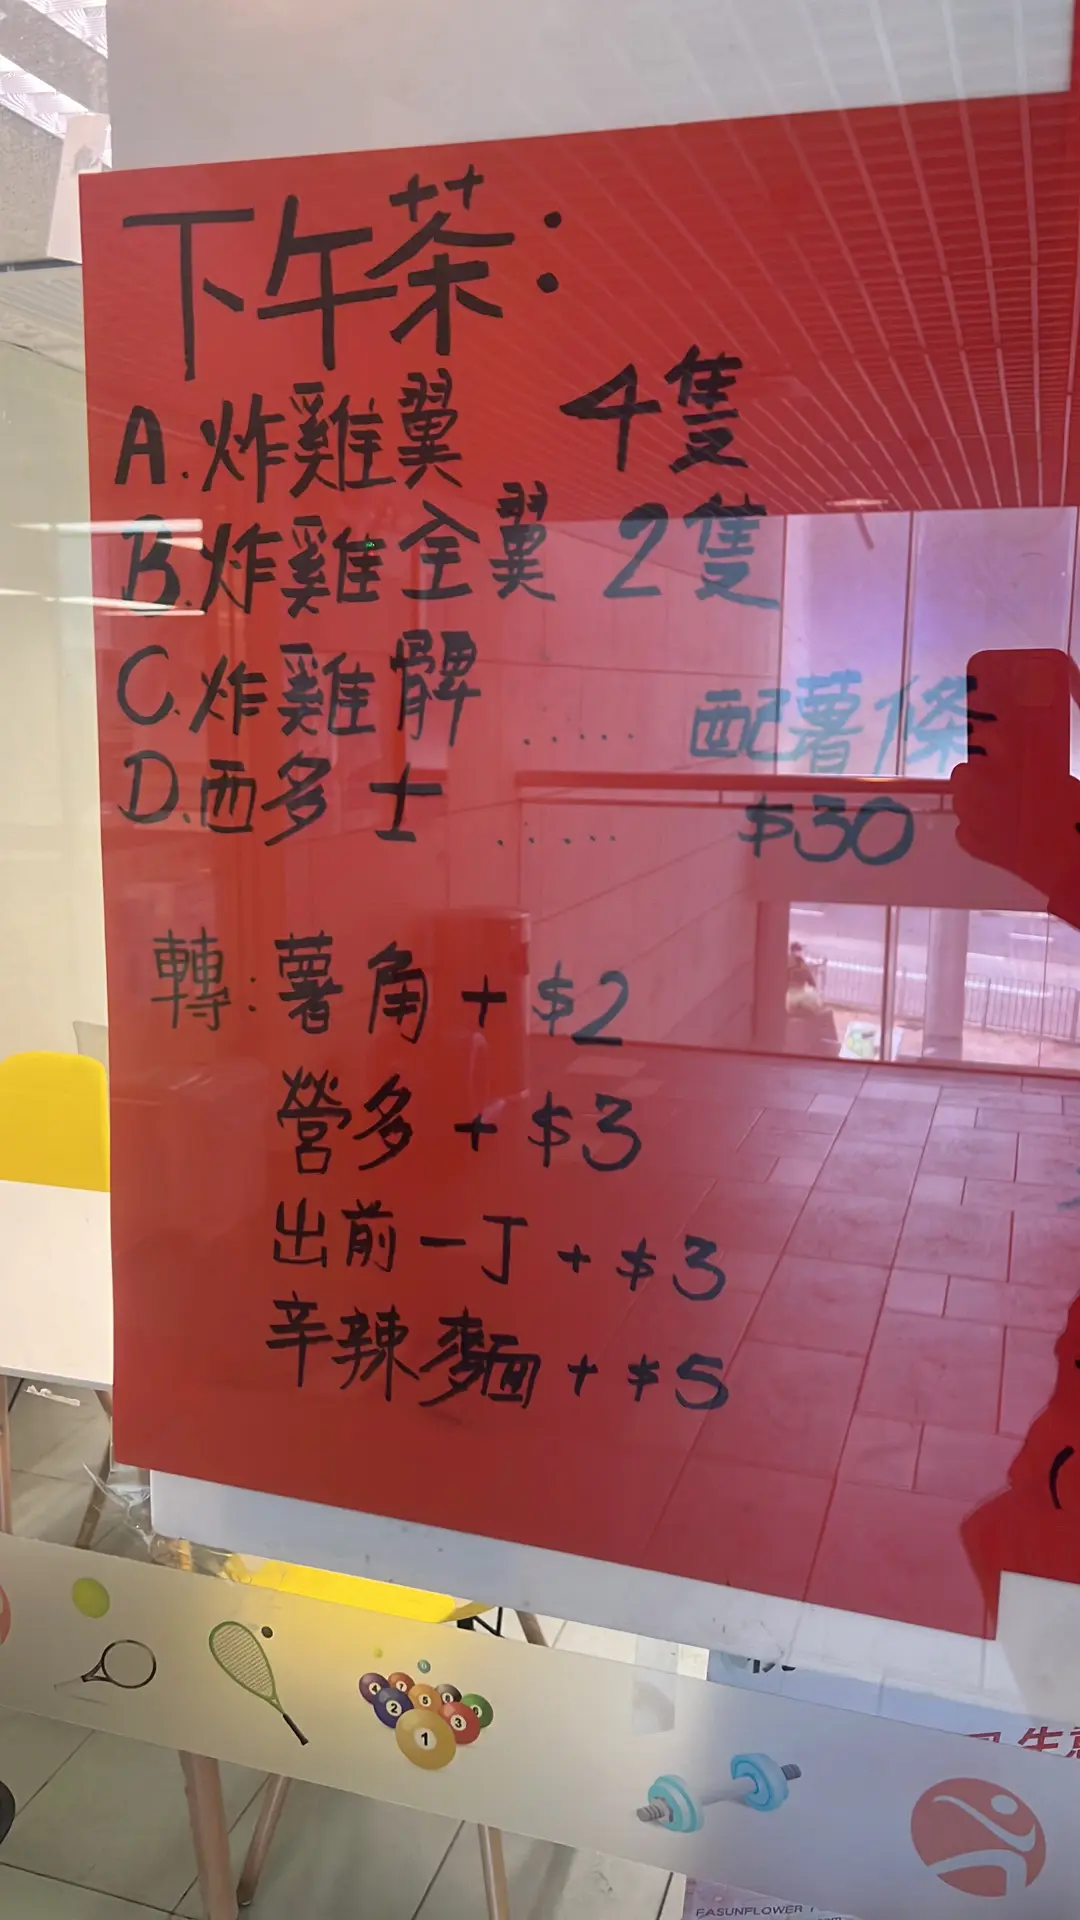 下午茶:
A.炸雞翼 4隻
B.炸雞全翼 2隻
C.炸雞髀 ...... 配薯條
D.西多士 ...... $30
轉:薯角+$2
營多+$3
出前一丁+$3
辛辣麵+$5
1
2
5
3
EASUNFLOWER